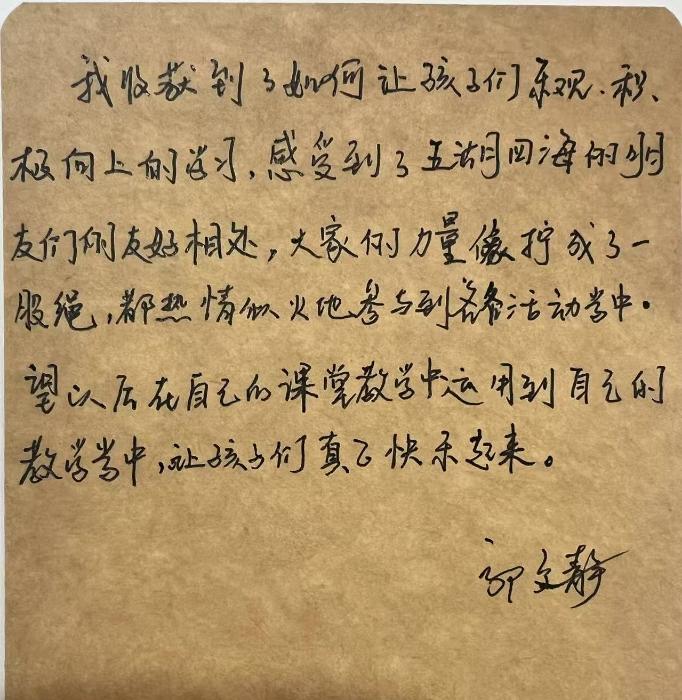 我收获到了如何让孩子们乐观、积、
极向上的学习,感受到了五湖四海的朋
友们的友好相处,大家的力量像拧成了一
股绳,都热情似火地参与到各活动当中。
望以后在自己的课堂教学中运用到自己的
教学当中,让孩子们真正快乐起来。
文静